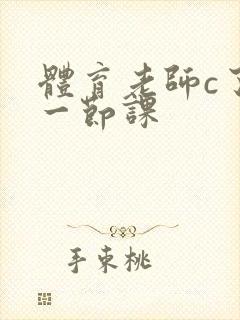 體育老師c了
一節課
手束桃